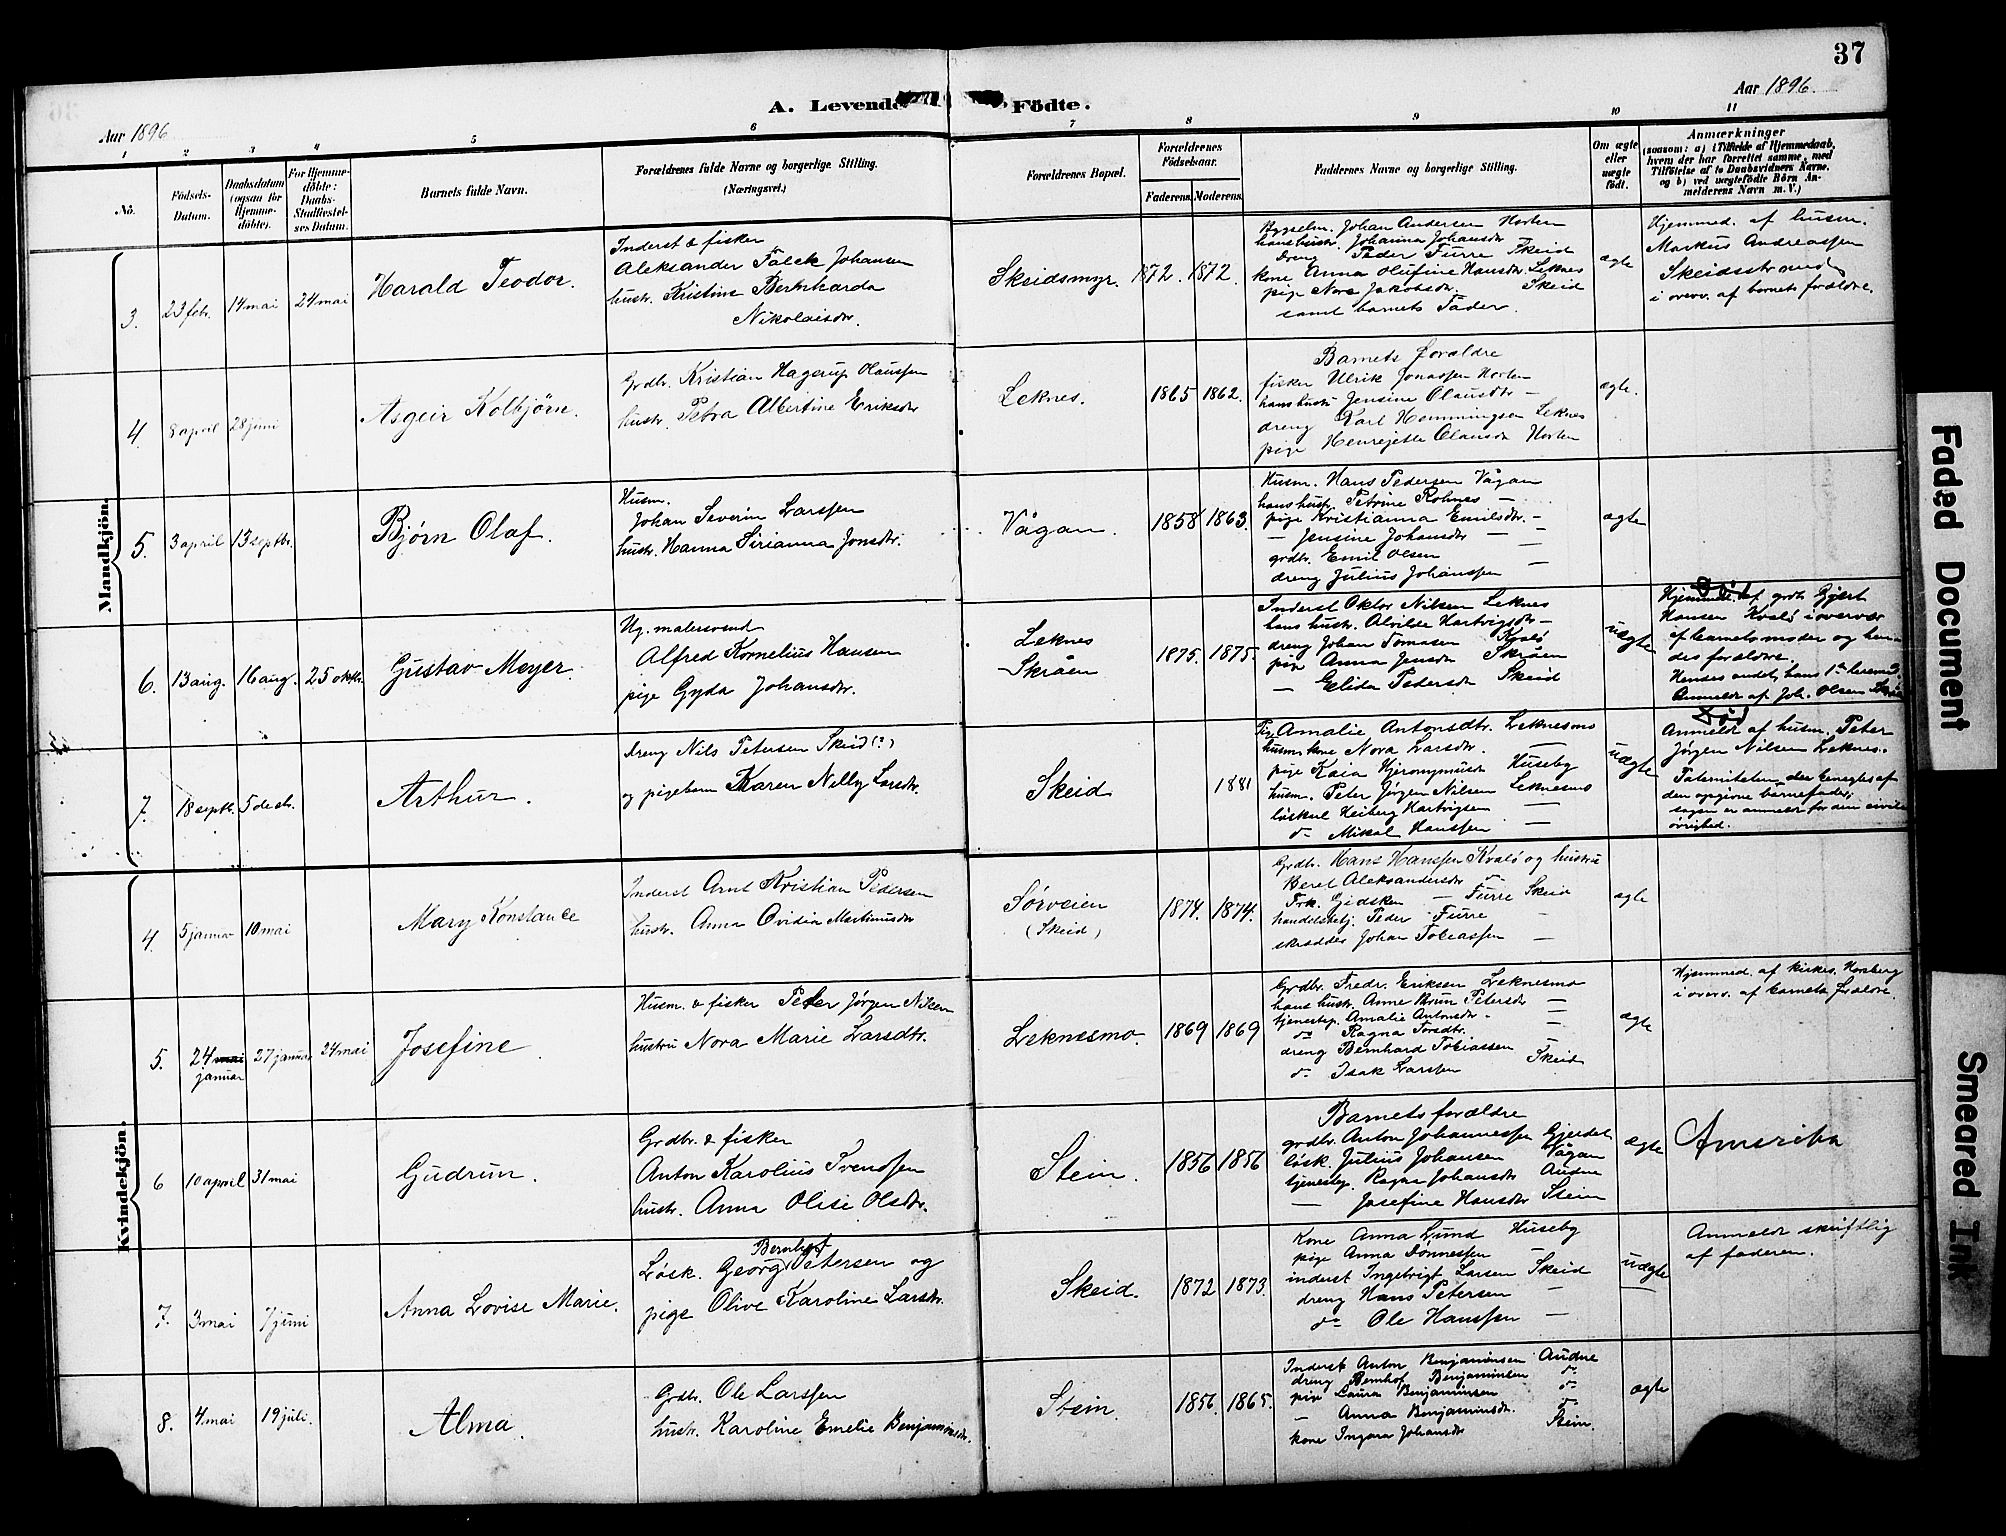 37
A. Levende Födte.
Aar 1896
Aar 1896.
1 2 3 4 5 6 7 8 9 10 11
No.
Födsels-
Datum.
Daabsdatum
(ogsaa for
Hjemme-
döbte).
For Hjemme-
döbte:
Daabs-
Stadfæstel-
ses Datum.
Barnets fulde Navn.
Forældrenes fulde Navne og borgerlige Stilling.
(Næringsvei.)
Forældrenes Bopæl.
Forældrenes
Födselsaar.
Faderens. Moderens.
Faddernes Navne og borgerlige Stilling.
Om ægte
eller
uægte
födt.
Anmærkninger
(saasom: a) i Tilfælde af Hjemmedaab,
hvem der har forrettet samme, med
Tilföielse af to Daabsvidners Navne,
og b) ved uægtefödte Börn An-
melderens Navn m. V.)
Mandkjön.
3. 23 febr. 14 mai 24 mai
Harald Teodor.
Inderst & fisker
Aleksander Falck Johansen
hustr. Kristine Bernharda
Nikolaisdtr.
Skeidsmyr. 1872. 1872.
Bygselm. Johan Andersen Horten
hans hustr. Johanna Johansdtr
dreng Peder Furre Skeid
kone Anna Olufine Hansdtr. Leknes
pige Nora Jakobsdtr. Skeid
samt barnets Fader.
ægte
Hjemmed. af husm.
Markus Andreassen
Skeidsstranden
i overv. af barnets forældre.
4 8 april 28 juni
Asgeir Kolbjørn.
Grdbr. Kristian Hagerup Olaussen
hustr. Petra Albertine Eriksdtr
Leknes. 1865 1862.
Barnets forældre
fisker Ulrik Jonassen Horten
hans hustr. Jensine Olausdtr —
dreng Karl Hemmingsen Leknes
pige Henrijette Olausdtr Horten
ægte.
5. 3 april 13 septbr.
Bjørn Olaf.
Husm.
Johan Severin Larssen
hustr. Hanna Sirianna Jonsdtr.
Vågan. 1858 1863.
Husm. Hans Pedersen Vågan
hans hustr. Petrine Rohnes —
pige Kristianna Emilsdtr. —
— Jensine Johansdtr —
grdbr. Emil Olsen —
dreng Julius Johanssen —
ægte
6. 13 aug. 16 aug. 25 oktbr.
Gustav Meyer.
Ug. malersvend
Alfred Kornelius Hansen
pige Gyda Johansdtr.
Leknes
Skråen 1875. 1875.
Inderst Oktor Nilsen Leknes
hans hustr. Alvilde Hartvigsdtr —
dreng Johan Tomasen Kvalö
pige Anna Jensdtr Skråen
— Elida Pedersdtr Skeid
uægte
Död
Hjemmed. af grdbr. Gjert
Hansen Kvalö i overvær
af barnets moder og hen-
des forældre.
Hendes andet, hans 1ste leierm.
Anmeldt af Joh. Olsen
7. 18 septbr. 5 decbr.
Arthur.
dreng Nils Petersen Skeid (?)
og pigebarn Karen Nelly Larsdtr.
Skeid 1881
Pige Amalie Antonsdtr. Leknesmo
husm. kone Nora Larsdtr. —
pige Kaia Hjeronymusdtr Huseby
husm. Peter Jørgen Nilsen Leknesmo
løskarl Heiberg Hartvigsen —
do Mikal Hanssen —
uægte
Död
Anmeldt af husm. Peter
Jørgen Nilsen Leknes.
Paterniteten, der benegtes af
den opgivne barnefader;
sagen er anmeldt for den civile
övrighed.
Kvindekjön.
4. 5 januar 10 mai
Mary Konstance
Inderst Arnt Kristian Pedersen
hustr. Anna Ovidia Martinusdtr
Sørveien
(Skeid) 1874. 1874.
Grdbr. Hans Hanssen Kvalö og hustru
Beret Aleksandersdtr
Frk. Gidsken — Furre Skeid
handelsbetj. Peder Furre —
skrædder Johan Tobiassen —
ægte
5. 24 mai
januar 27 januar 24 mai
Josefine
Husm. & fisker Peter Jørgen Nilsen
hustru Nora Marie Larsdtr.
Leknesmo. 1869 1869
Grdbr. Fredr. Eriksen Leknesmo
hans hustr. Anne Brun Petersdtr —
tjenestep. Amalie Antonsdtr. —
do Ragna Torsdtr. —
dreng Bernhard Tobiassen —
do Isak Larssen Skeid
ægte
Hjemmed. af kirkes. Norberg
i overv. af barnets forældre.
6 10 april 31 mai
Gudrun.
Grdbr. & fisker
Anton Karolius Svenssen
hustr. Anna Olise Olsdtr.
Stein. 1856 1856
Barnets forældre
grdbr. Anton Johannessen Gjerdet
løsk. Julius Johansen Vågan
tjenestep. Ragna Johansdtr Audne
— Josefine Hansdtr Stein
ægte
Amerika
7. 3 mai 7 juni
Anna Lovise Marie.
Løsk. Georg Bernhoft Petersen og
pige Olive Karoline Larsdtr.
Skeid. 1872 1873.
Kone Anna Lund Huseby
pige Anna Dønnessen —
inderst Ingebrigt Larsen Skeid
dreng Hans Petersen —
do Ole Hanssen —
uægte
Anmeldt skriftlig
af faderen.
8. 4 mai 19 juli.
Alma.
Grdbr. Ole Larssen
hustr. Karoline Emelie Benjaminsdtr.
Stein. 1856. 1865.
Inderst Anton Benjaminsen Audne
dreng Bernhof Benjaminsen do
pige Laura Benjaminsen do
— Anna Benjaminsdtr. do
kone Ingara Johansdtr Stein.
ægte
Faded Document
Smeared Ink